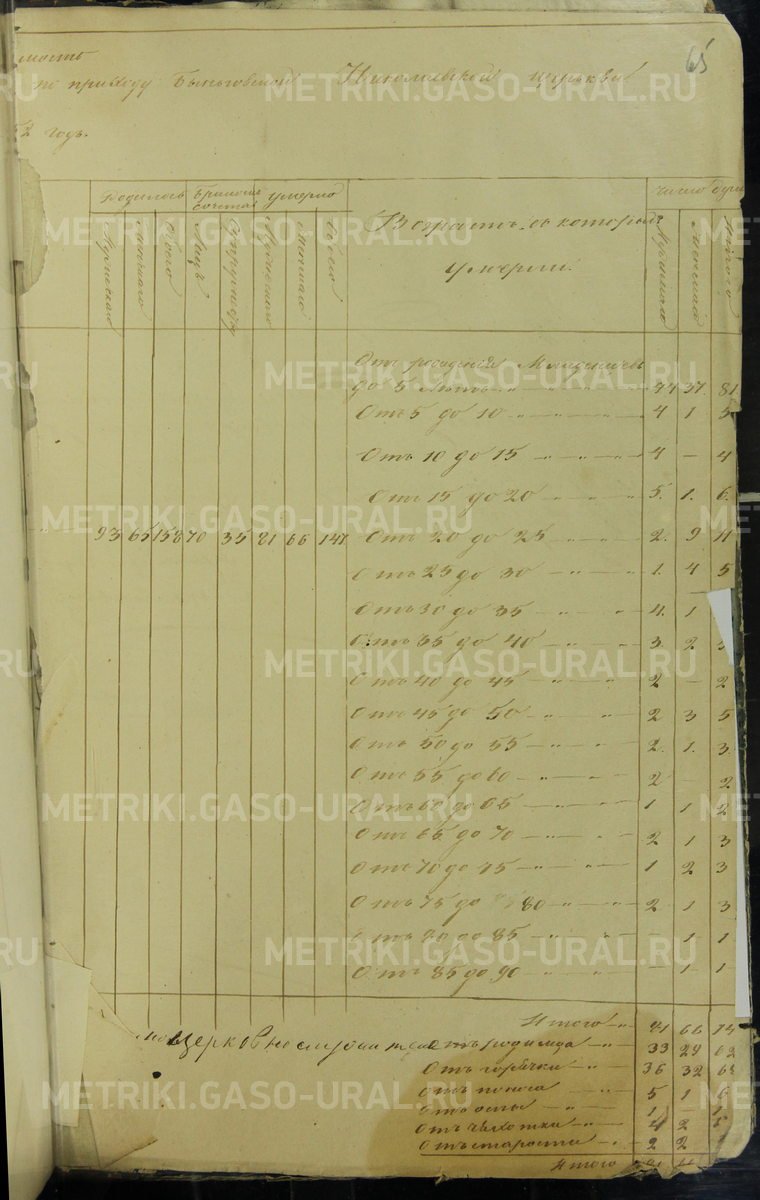 65
мость
по приходу Быньговской Николаевской церкви
52 годъ.
Родилось Бракомъ сочетал. умерло число душ
Мужескаго Женскаго Обоего Лицъ Супружествъ Мужескаго Женскаго Обоего
Возрастъ, въ которомъ умерли.
Мужескаго Женскаго Обоего
Отъ рожденія Младенцевъ
до 5 лѣтъ 44 37 81
Отъ 5 до 10 4 1 5
Отъ 10 до 15 4 — 4
Отъ 15 до 20 5. 1. 6.
93 65 158 70 35 81 66 147 Отъ 20 до 25 2. 9 11
Отъ 25 до 30 1. 4 5
Отъ 30 до 35 4. 1
Отъ 35 до 40 3. 2 5
Отъ 40 до 45 2 — 2
Отъ 45 до 50 2 3 5
Отъ 50 до 55 2. 1. 3.
Отъ 55 до 60 2 — 2
Отъ 60 до 65 1 1 2
Отъ 65 до 70 2 1 3
Отъ 70 до 75 1 2 3
Отъ 75 до 80 2 1 3
Отъ 80 до 85 — 1 1
Отъ 85 до 90 — 1 1
Итого 81 66 14
Церковнослужители
Отъ родимца 33 29 62
Отъ горячки 36 32 68
Отъ поноса 5 1 6
Отъ оспы 1 — 1
Отъ чахотки 4 2
Отъ старости 2 2
Итого
METRIKI.GASO-URAL.RU